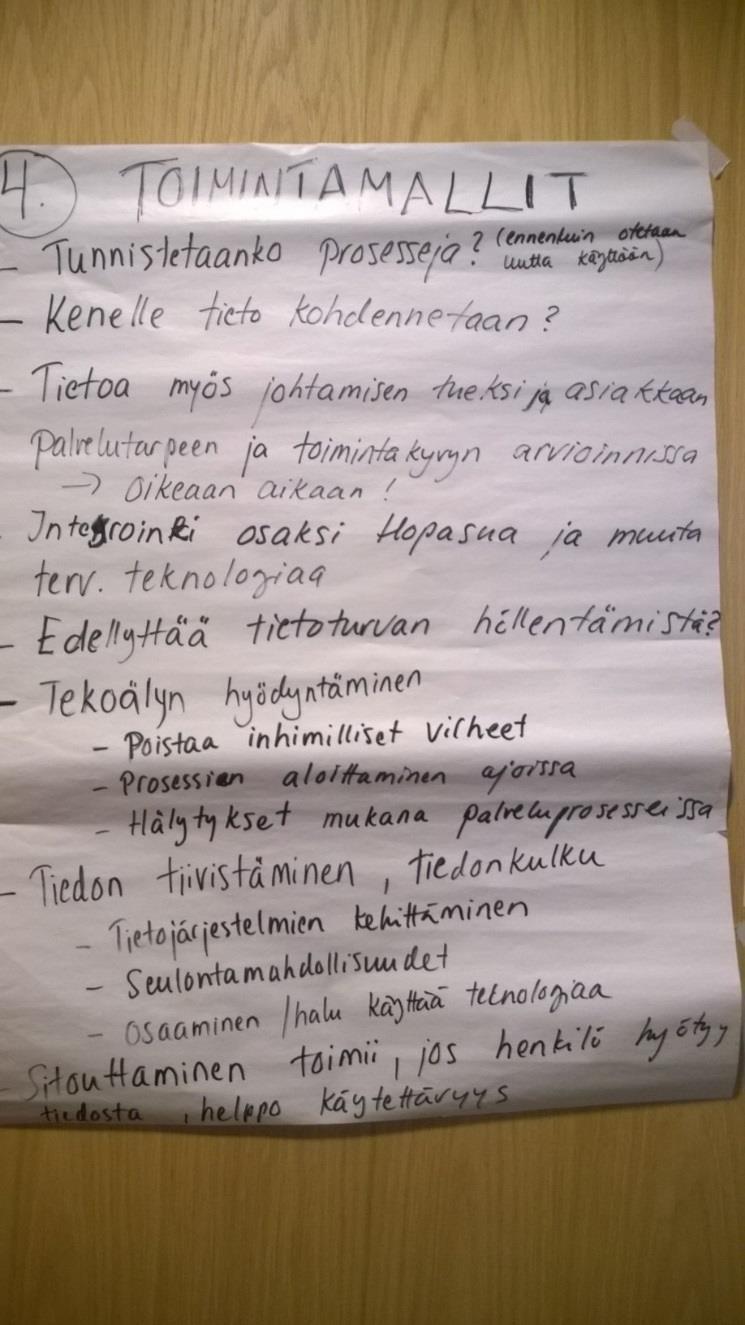 4. TOIMINTAMALLIT
- Tunnistetaanko prosesseja? (ennenkuin otetaan
uutta käyttöön)
- Kenelle tieto kohdennetaan?
- Tietoa myös johtamisen tueksi ja asiakkaan
palvelutarpeen ja toimintakyvyn arvioinnissa
→ oikeaan aikaan!
- Integrointi osaksi Hopasua ja muuta
terv. teknologiaa
- Edellyttää tietoturvan hillentämistä?
- Tekoälyn hyödyntäminen
- Poistaa inhimilliset virheet
- Prosessien aloittaminen ajoissa
- Hälytykset mukana palveluprosesseissa
- Tiedon tiivistäminen, tiedonkulku
- Tietojärjestelmien kehittäminen
- Seulontamahdollisuudet
- osaaminen /halu käyttää teknologiaa
- Sitouttaminen toimii, jos henkilö hyötyy
tiedosta, helppo käytettävyys